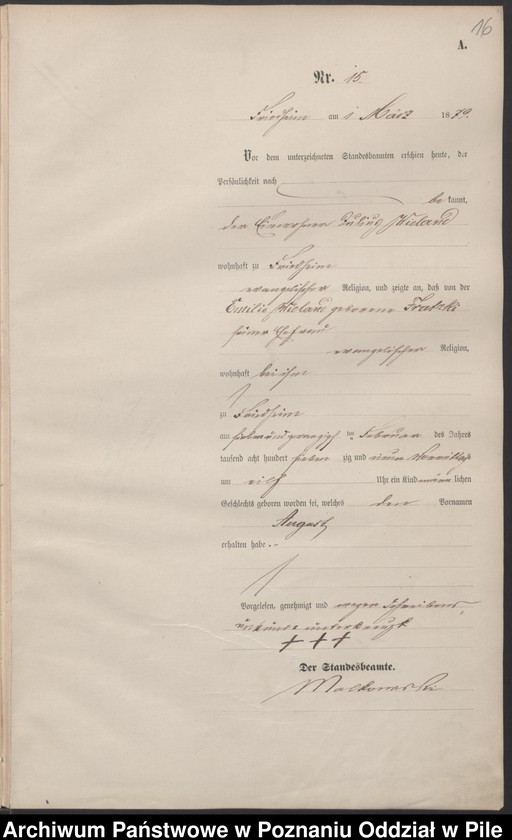 16
A.
Nr. 15.
Friedheim am 1 März 1879.
Vor dem unterzeichneten Standesbeamten erschien heute, der
Persönlichkeit nach
bekannt,
der Einwohner Julius Wieland
wohnhaft zu Friedheim
evangelischer Religion, und zeigte an, daß von der
Emilie Wieland geborene Fratzki
seiner Ehefrau
evangelischer Religion,
wohnhaft bei ihm
zu Friedheim
am sieben und zwanzigsten Februar des Jahres
tausend acht hundert sieben zig und neun Vormittags
um eilf Uhr ein Kind männlichen
Geschlechts geboren worden sei, welches den Vornamen
August
erhalten habe.
Vorgelesen, genehmigt und wegen Schreibens-
unkunde unterkreuzt
+++
Der Standesbeamte.
Malkowski
Archiwum Państwowe w Poznaniu Oddział w Pile